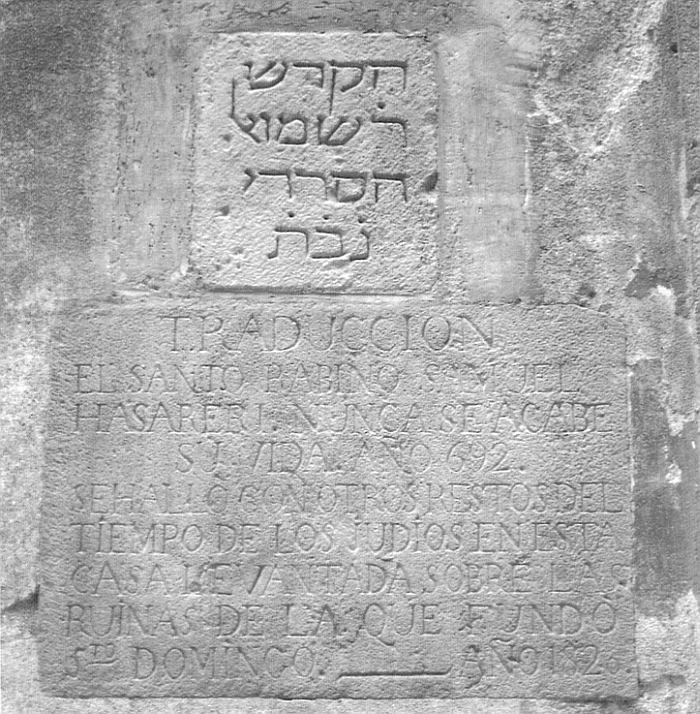 הקדש
ר׳ שמואל
הסרדי
נ̇ב̇ת̇
TRADUCCION
EL SANTO RABINO SAMUEL
HASARERI. NUNCA SE ACABE
SU VIDA. AÑO 692.
SE HALLÒ CON OTROS RESTOS DEL
TIEMPO DE LOS JUDIOS EN ESTA
CASA LEVANTADA SOBRE LAS
RUINAS DE LA QUE FUNDÒ
STO DOMINGO. AÑO 1820.